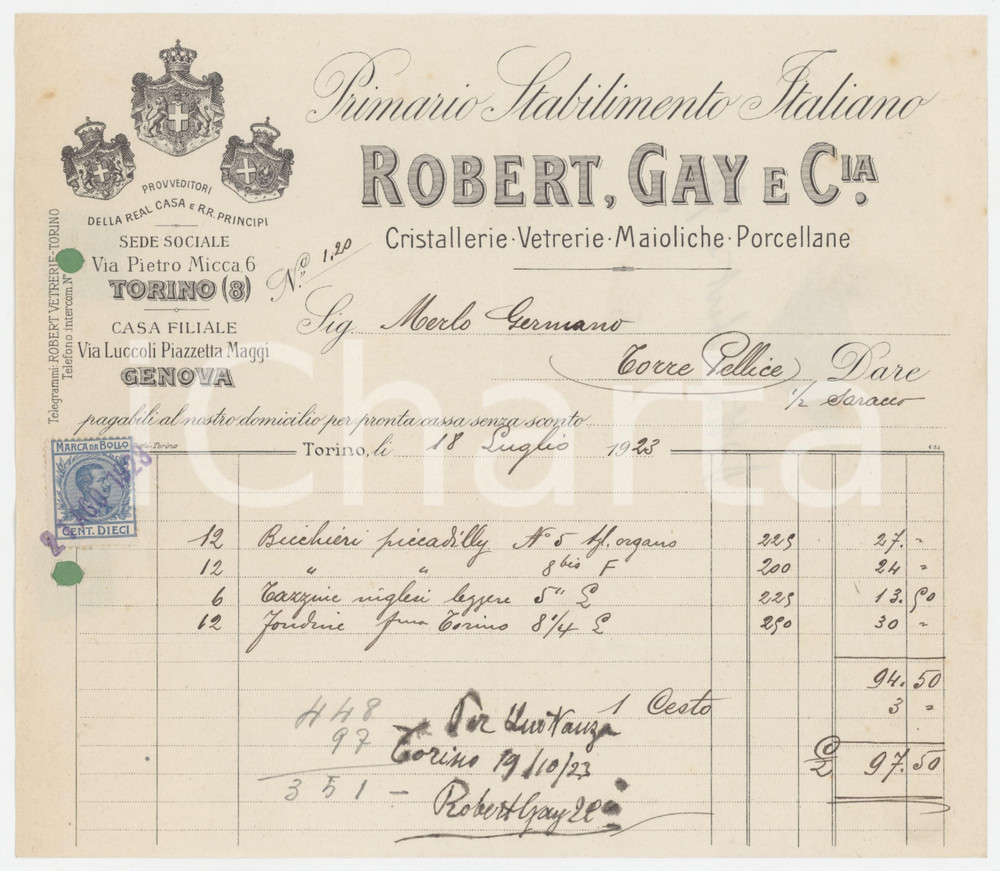 Primario Stabilimento Italiano
ROBERT, GAY E CIA.
Cristallerie·Vetrerie·Maioliche·Porcellane
PROVVEDITORI
DELLA REAL CASA E RR. PRINCIPI
SEDE SOCIALE
Via Pietro Micca, 6
TORINO (8)
CASA FILIALE
Via Luccoli Piazzetta Maggi
GENOVA
Telegrammi: ROBERT VETRERIE-TORINO
Telefono intercom. N°
N.° 120
Sig. Merlo Germano
Torre Pellice Dare
1/2 Saracco
pagabili al nostro domicilio per pronta cassa senza sconto
Torino, li 18 Luglio 1923
MARCA DA BOLLO
CENT. DIECI
AGO 1923
iCharta
12 Bicchieri piccadilly N° 5 organo 225 27. "
12 " " 8 bis F 200 24 "
6 Tazzine inglesi leggere 5" L 225 13.50
12 Fondine Torino 8 1/4 L 250 30 "
94.50
1 Cesto 3 "
97.50
448
97
351 -
Per Quietanza
Torino 19/10/23
Robert Gay